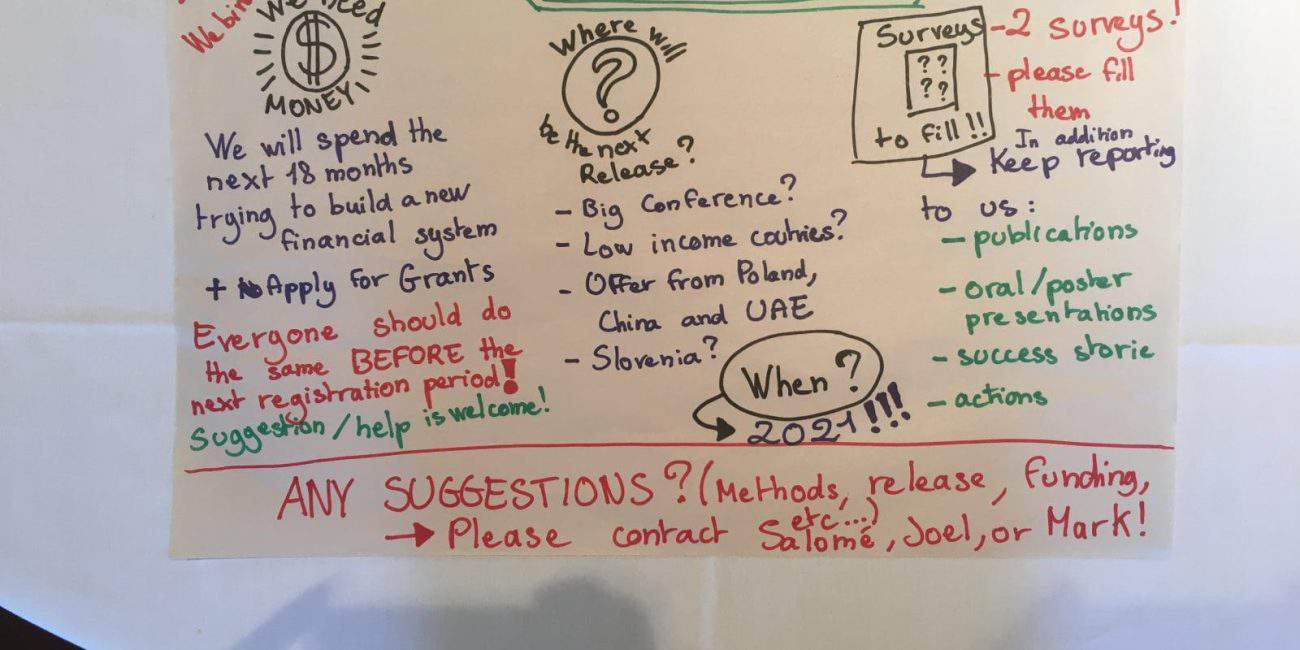 We need
MONEY
We will spend the
next 18 months
trying to build a new
financial system
+ Apply for Grants
Everyone should do
the same BEFORE the
next registration period!
Suggestion/help is welcome!
Where will
?
be the next
Release?
- Big Conference?
- Low income coutries?
- Offer from Poland,
China and UAE
- Slovenia?
When?
2021!!!
Surveys
? ?
? ?
to fill!!
-2 surveys!
- please fill
them
In addition
Keep reporting
to us:
- publications
- oral/poster
presentations
- success storie
- actions
ANY SUGGESTIONS? (Methods, release, funding,
etc...)
→ Please contact Salomé, Joel, or Mark!